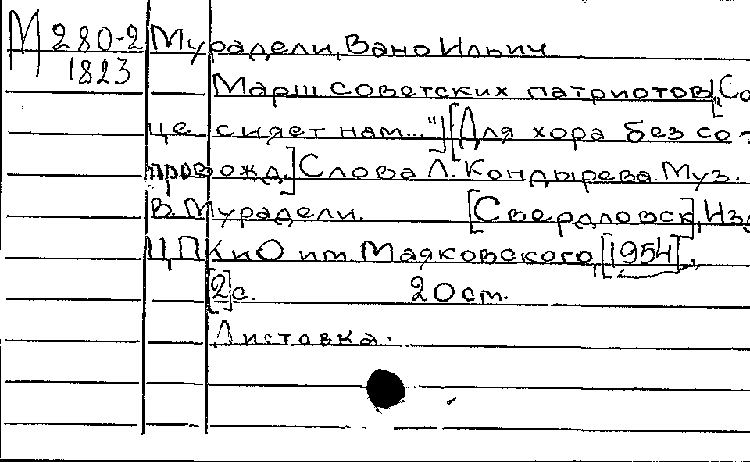 М 280-2 Мурадели, Вано Ильич
1823
Марш советских патриотов ["Со
це сияет нам..."] [Для хора без со-
провожд.] Слова Л. Кондырева. Муз.
В. Мурадели. [Свердловск], Изд
ЦПКиО им. Маяковского, [1954].
[2] с. 20 см.
Листовка.